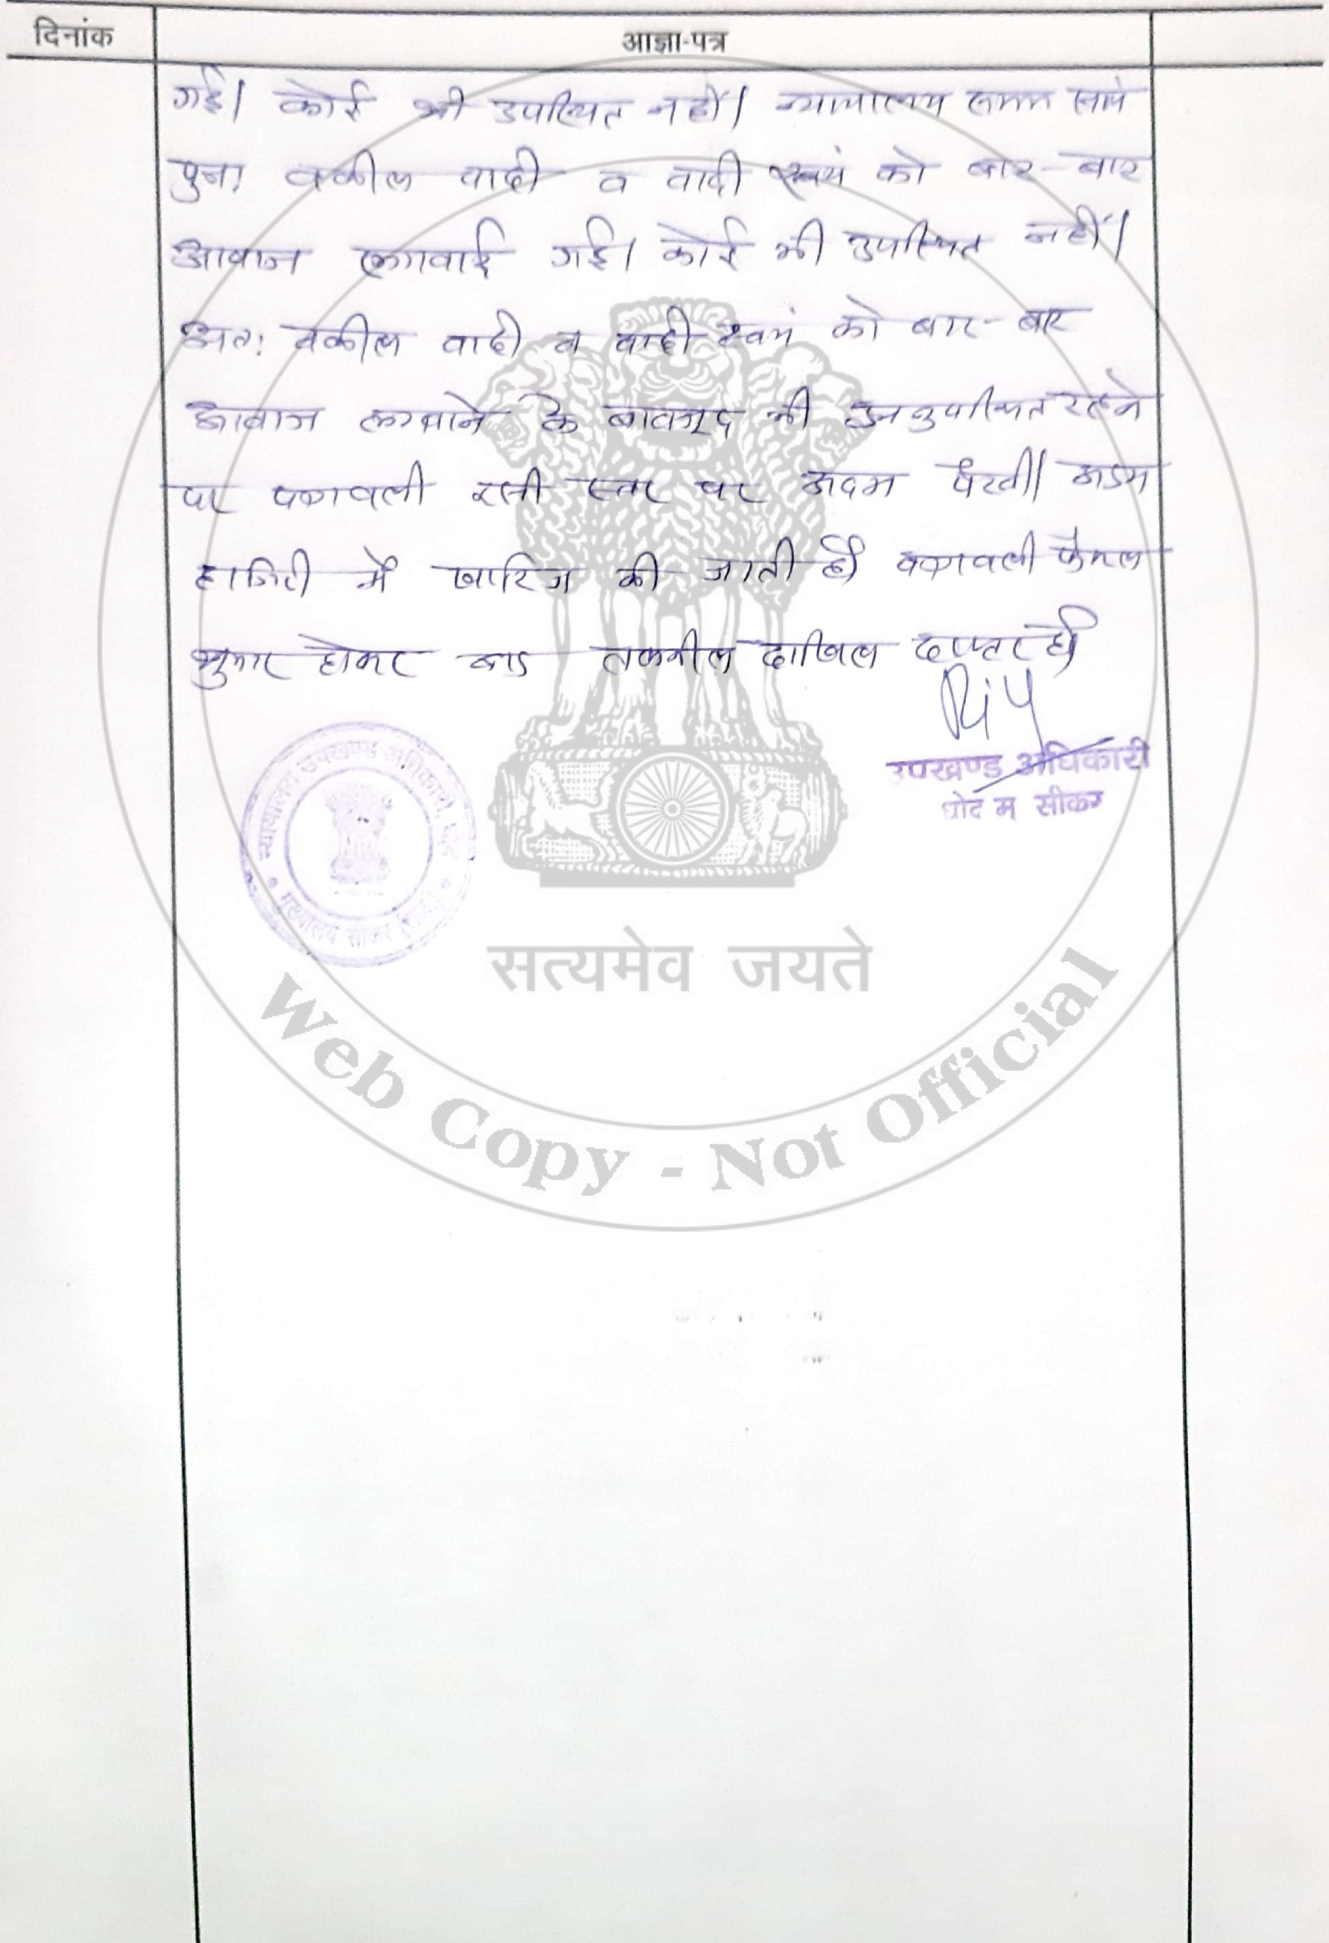 दिनांक
आज्ञा-पत्र
गई। कोई भी उपस्थित नहीं। न्यायालय समय सायं
पुनः वकील वादी व वादी स्वयं को बार-बार
आवाज लगवाई गई। कोई भी उपस्थित नहीं।
अतः वकील वादी व वादी स्वयं को बार-बार
आवाज लगवाने के बावजूद भी अनुपस्थित रहने
पर पत्रावली इसी स्तर पर अदम पैरवी। अदम
हाजिरी में खारिज की जाती है। पत्रावली फैसल
शुमार होकर बाद तकमील दाखिल दफ्तर हो।
उपखण्ड अधिकारी
धोद म सीकर
न्यायालय उपखण्ड अधिकारी, धोद
मुख्यालय सीकर (राज.)
सत्यमेव जयते
Web Copy - Not Official